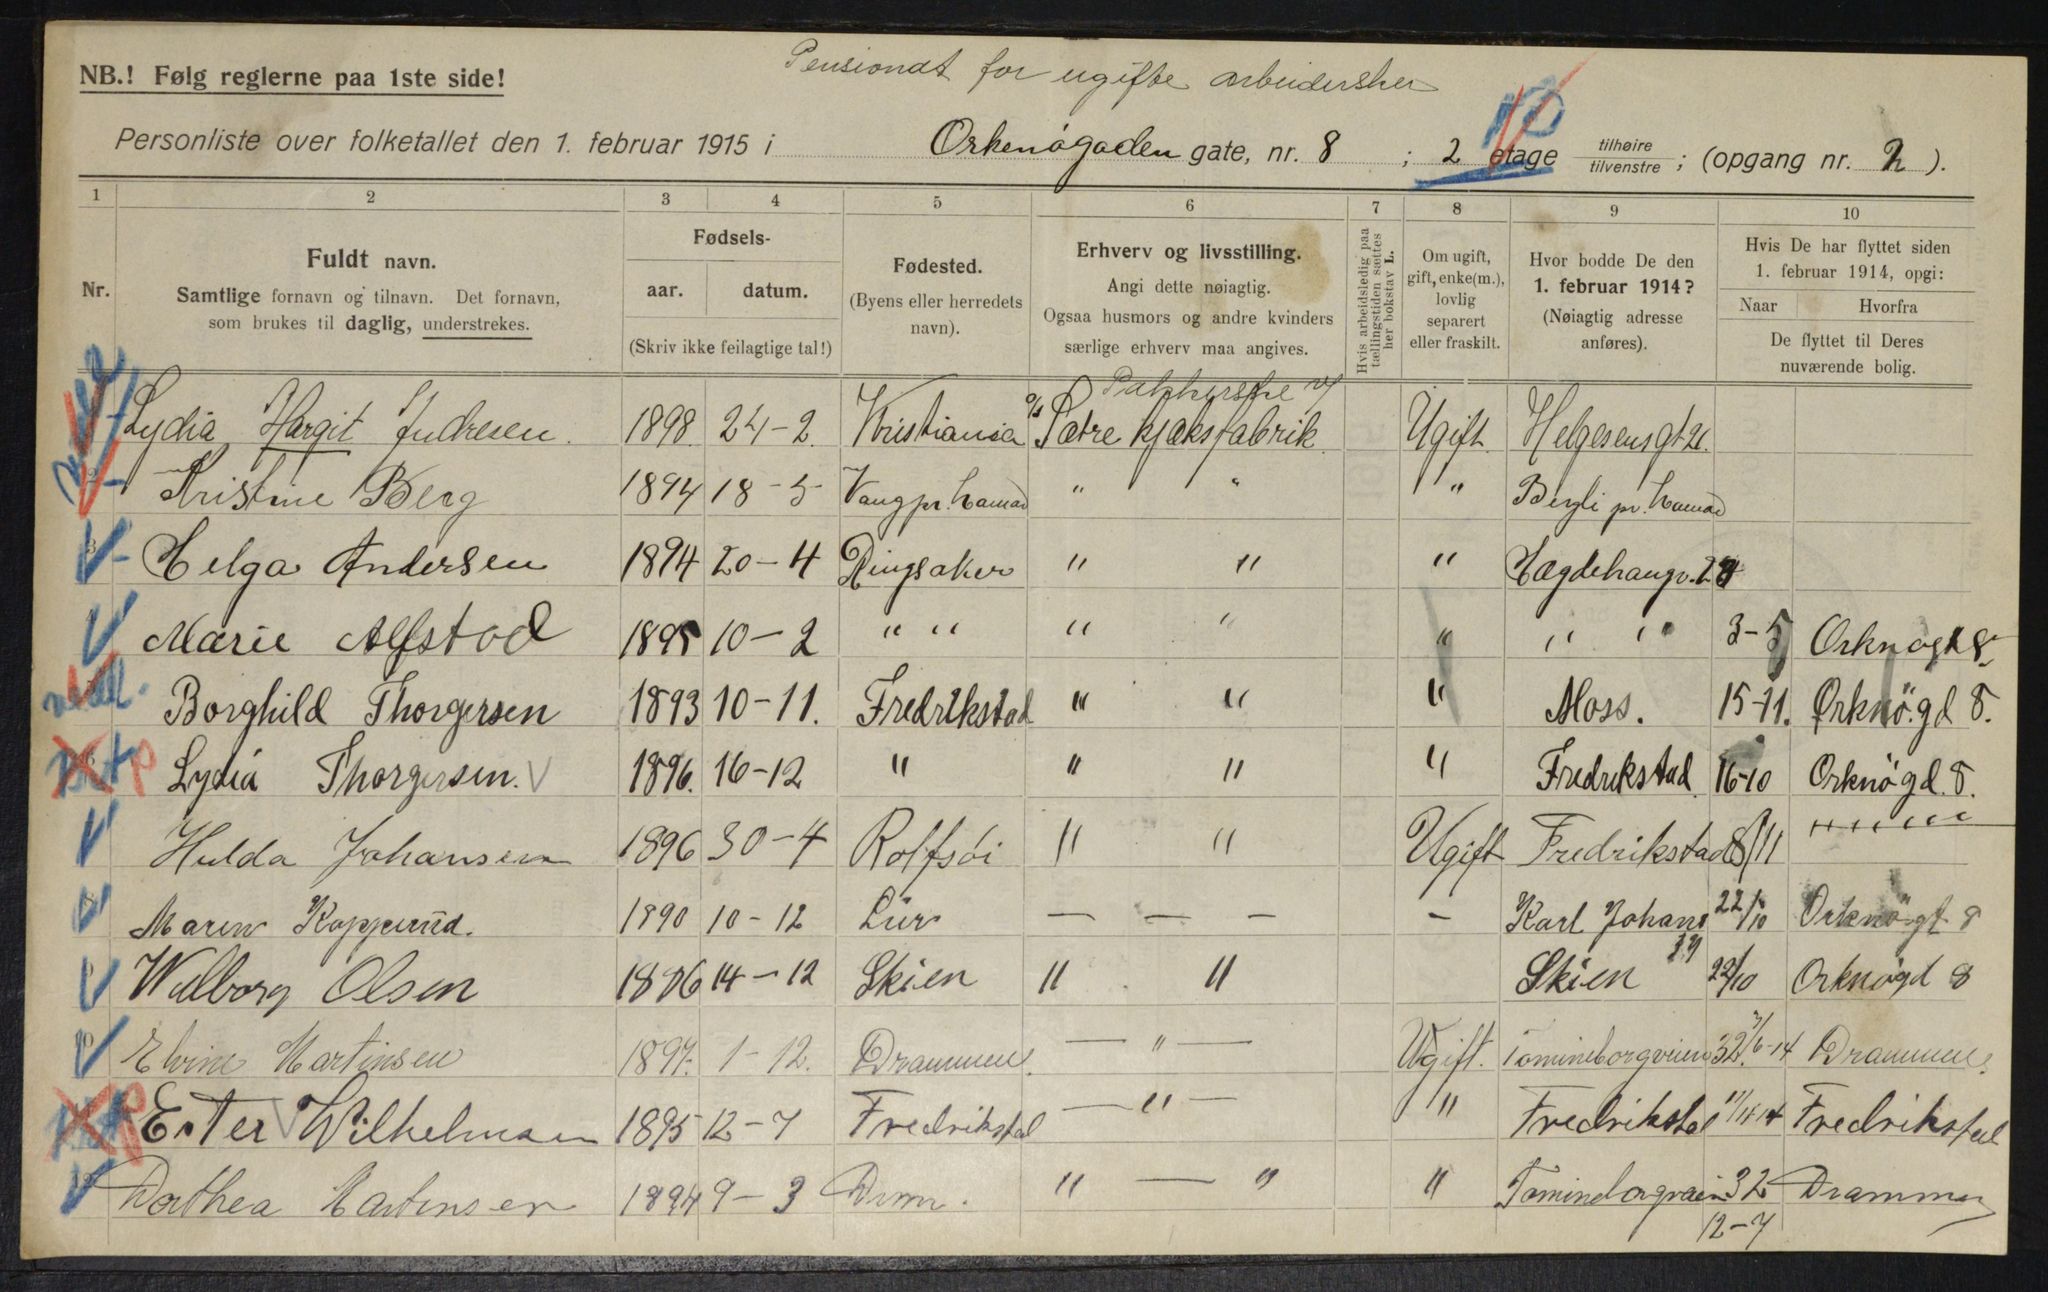 Pensionat for ugifte arbeidersker
NB.! Følg reglerne paa 1ste side!
Personliste over folketallet den 1. februar 1915 i Orkenögaden gate, nr. 8 ; 2 etage tilhøire tilvenstre ; (opgang nr. 2 ).
1 2 3 4 5 6 7 8 9 10
Nr.
Fuldt navn.
Samtlige fornavn og tilnavn. Det fornavn,
som brukes til daglig, understrekes.
Fødsels-
aar. datum.
(Skriv ikke feilagtige tal!)
Fødested.
(Byens eller herredets
navn).
Erhverv og livsstilling.
Angi dette nøiagtig.
Ogsaa husmors og andre kvinders
særlige erhverv maa angives.
Hvis arbeidsledig paa
tællingstiden sættes
her bokstav L.
Om ugift,
gift, enke(m.),
lovlig
separert
eller fraskilt.
Hvor bodde De den
1. februar 1914?
(Nøiagtig adresse
anføres).
Hvis De har flyttet siden
1. februar 1914, opgi:
Naar Hvorfra
De flyttet til Deres
nuværende bolig.
Pakkerske v/
Lydia Margit Andresen. 1898. 24-2. Kristiania A/s Sætre kjæksfabrik Ugift. Helgesensgt 21.
2 Kristine Berg 1894 18-5 Vang pr. Hamar " " " Bergli pr. Hamar
3 Helga Andersen 1894 20-4 Ringsaker " " " Hægdehaugv.
Marie Alfstad 1895 10-2 " " " " " " " 3-5 Orknøgt 8
Borghild Thorgersen 1893 10-11. Fredrikstad " " " Moss. 15-11. Orknö.gd 8.
6 Lydia Thorgersen. V 1896. 16-12 " " " " Fredrikstad 16-10 Orknögd. 8.
Hulda Johansen 1896 30-4 Rolfsöi " " Ugift Fredrikstad 8/11 " " " " "
8 Maren Kopperud. 1890 10-12 Lier — — — - Karl Johans 22/10 Orknögt 8
Willborg Olsen 14-12 Skien " " Skien 22/10 Orknøgd 8
10 Elvine Martinsen 1897. 1-12. Drammen. — " — Ugift. Tømineborgveien 32. 3/6-14 Drammen.
Ester V Wilhelmsen 1895 12-7 Fredrikstad — " — " Fredrikstad 11/11 14 Fredrikstad
12 Dorthea Martinsen 1894 9-3 Drm. " — " " Tømineborgveien 32 Drammen
12-7